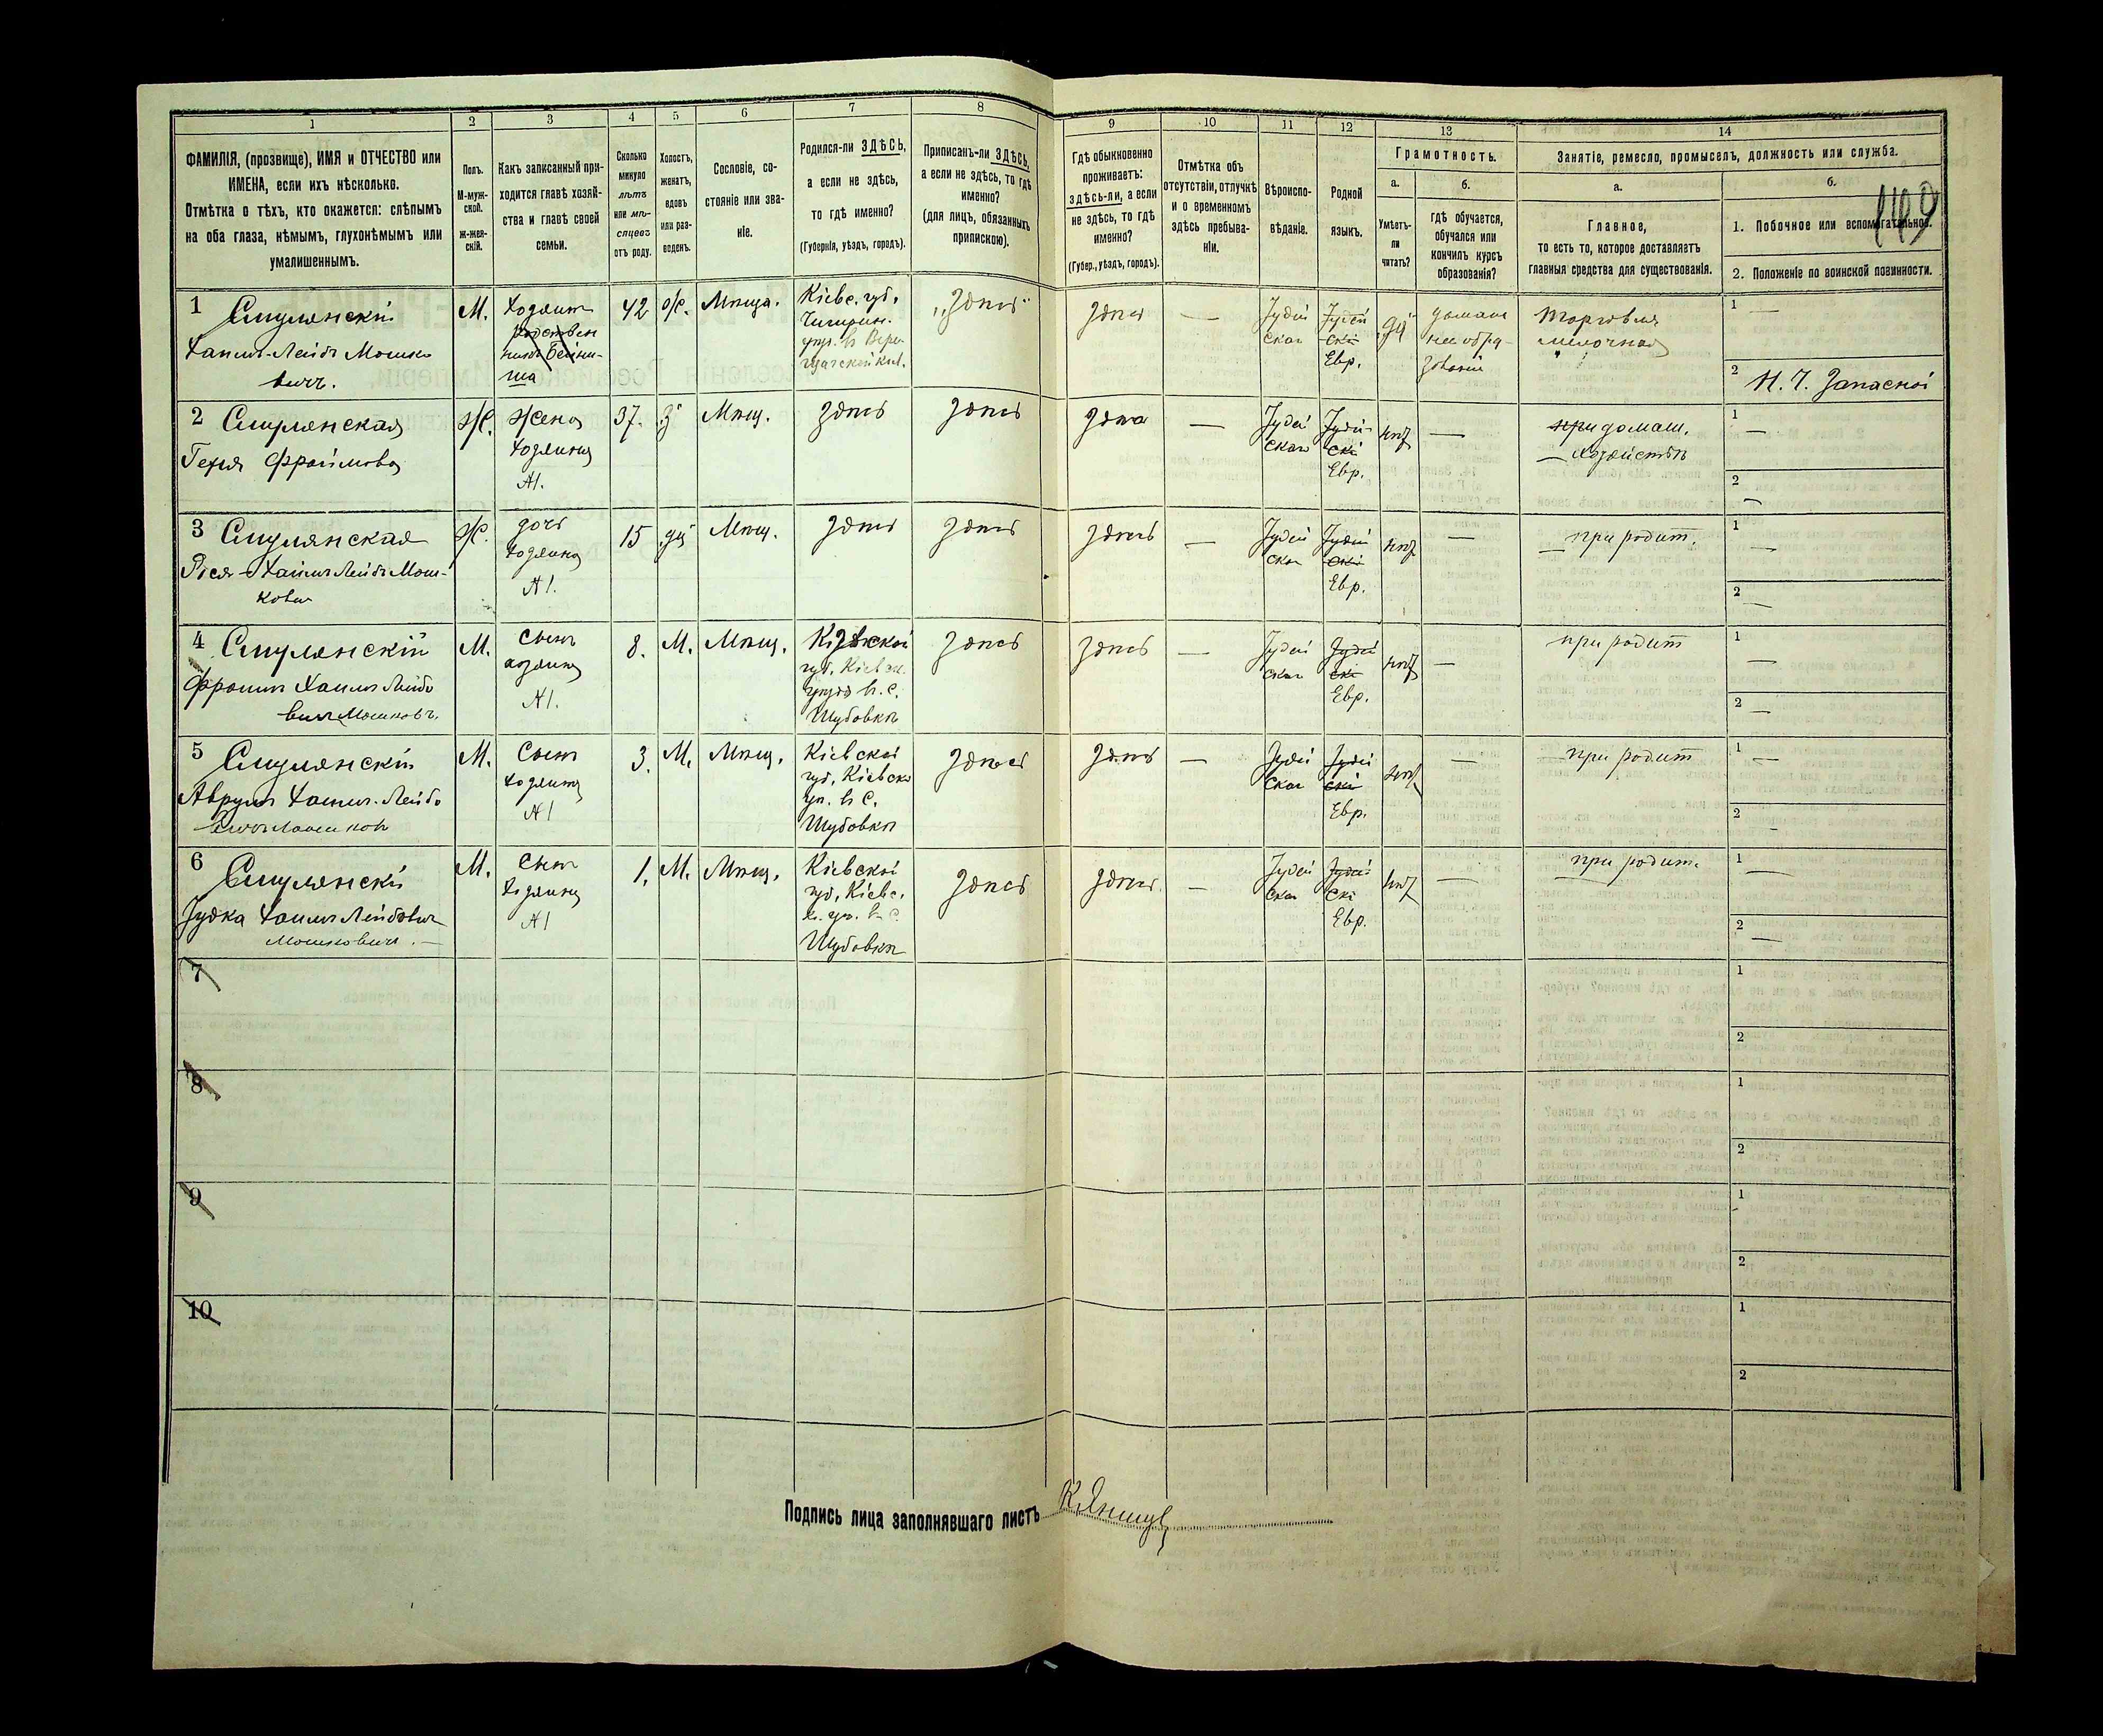 1
2
3
4
5
6
7
8
ФАМИЛІЯ, (прозвище), ИМЯ и ОТЧЕСТВО или
ИМЕНА, если ихъ нѣсколько.
Отмѣтка о тѣхъ, кто окажется: слѣпымъ
на оба глаза, нѣмымъ, глухонѣмымъ или
умалишеннымъ.
Полъ.
М-муж-
ской.
ж-жен-
скій.
Какъ записанный при-
ходится главѣ хозяй-
ства и главѣ своей
семьи.
Сколько
минуло
лѣтъ
или мѣ-
сяцевъ
отъ роду.
Холостъ,
женатъ,
вдовъ
или раз-
веденъ.
Сословіе, со-
стояніе или зва-
ніе.
Родился-ли ЗДѢСЬ,
а если не здѣсь,
то гдѣ именно?
(Губернія, уѣздъ, городъ).
Приписанъ-ли ЗДѢСЬ,
а если не здѣсь, то гдѣ
именно?
(для лицъ, обязанныхъ
припискою).
9
10
11
12
13
14
Гдѣ обыкновенно
проживаетъ:
здѣсь-ли, а если
не здѣсь, то гдѣ
именно?
(Губер., уѣздъ, городъ).
Отмѣтка объ
отсутствіи, отлучкѣ
и о временномъ
здѣсь пребыва-
ніи.
Вѣроиспо-
вѣданіе.
Родной
языкъ.
Грамотность.
а.
Умѣетъ-
ли
читать?
б.
гдѣ обучается,
обучался или
кончилъ курсъ
образованія?
Занятіе, ремесло, промыселъ, должность или служба.
а.
Главное,
то есть то, которое доставляетъ
главныя средства для существованія.
б.
1. Побочное или вспомогательное.
2. Положеніе по воинской повинности.
1
Смулянскій
Хаимъ-Лейбъ Мошко
вичъ.
М.
Хозяинъ
42
ж.
Мѣща.
Кіевс. губ.
Чигирин.
„здѣсь“
здѣсь
—
Іудей
ская
Іудей
скій
Евр.
да
домаш
нее обра-
зованіе
Торговля
мелочная
1
—
2
Н. Ч. Запасной
2 Смулянская
М. Ж.
Жена
хозяина
№1.
37.
з
Мѣщ.
здѣсь
здѣсь
здѣсь
—
Іудей
ская
Іудей-
скій
Евр.
нѣт
—
при домаш.
хозяйствѣ
1
—
2
—
3 Смулянская
Ж.
дочь
хозяина
№1.
15
дѣ
Мѣщ.
здѣсь
здѣсь
здѣсь
—
Іудей
ская
Іудей
скій
Евр.
нѣт
—
при родит.
1
—
2
—
4 Смулянскій
Фроимъ Хаимъ Лейбо
вичъ Мошковъ.
М.
Сынъ
хозяина
№1.
8.
М.
Мѣщ.
Кіевской
губ. Кіевск.
уѣзда въ с.
Шубовкѣ
здѣсь
здѣсь
—
Іудей
ская
Іудей
скій
Евр.
нѣт
—
при родит
1
—
2
—
5 Смулянскій
Аврумъ Хаимъ-Лейбо
М.
Сынъ
хозяина
№1
3.
М.
Мѣщ.
Кіевской
губ. Кіевск
уѣ. въ с.
Шубовкѣ
здѣсь
здѣсь
—
Іудей
ская
Іудей
скій
Евр.
нѣт
—
при родит
1
—
2
—
6
Смулянскій
Іудка Хаимъ Лейбович
Мошковичъ. —
М.
Сынъ
хозяина
№1
1.
М.
Мѣщ.
Кіевской
губ. Кіевс.
уѣ. въ с.
Шубовкѣ
здѣсь
здѣсь
—
Іудей
ская
Іудей
скій
Евр.
нѣт
—
при родит.
1
—
2
—
7
1
2
8
1
2
9
1
2
10
1
2
Подпись лица заполнявшаго листъ